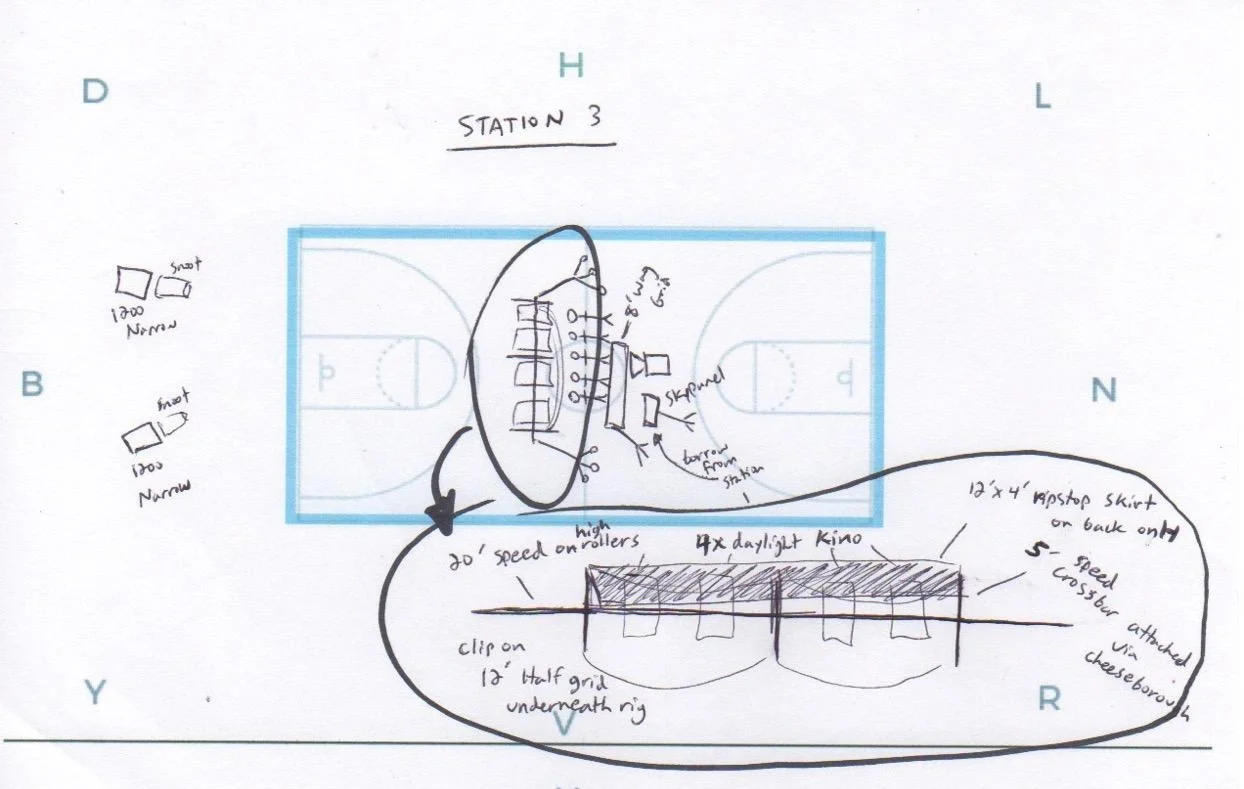 D
H
L
STATION 3
snoot
1200
Narrow
8' Wag
Grid
B
snoot
1200
Narrow
skypanel
borrow
from
station
1
N
12'x4' ripstop skirt
on back only
20' speed on high rollers
4x daylight Kino
5' speed
crossbar
attached
via
cheeseborough
clip on
12' Half grid
underneath rig
Y
V
R